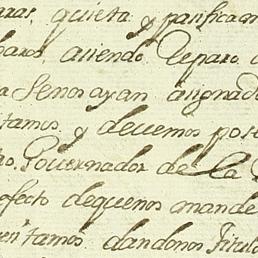 quieta y pasificam
asiendo Reparo
a Senos ayan asignado
tamos, y devemos pose
Governador de la
efecto dequenos mande
tamos dandonos Titulo